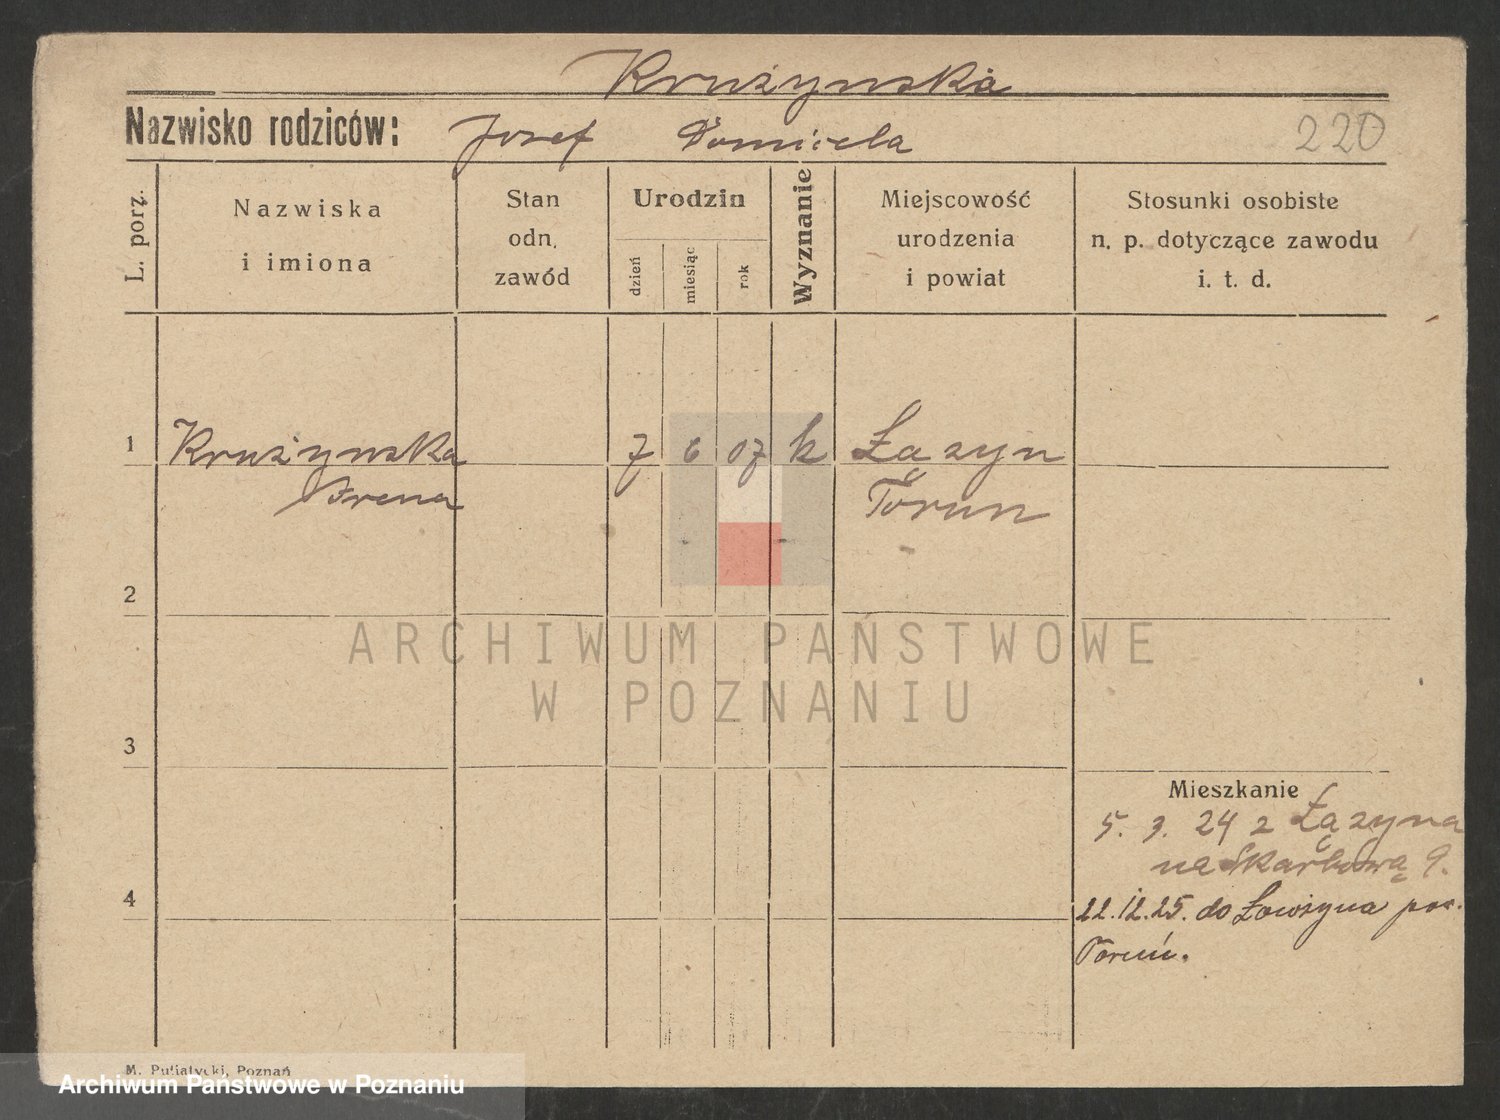 Krużynska
Nazwisko rodziców: Josef Domicela
220
L. porz.
Nazwiska
i imiona
Stan
odn.
zawód
Urodzin
dzień
miesiąc
rok
Wyznanie
Miejscowość
urodzenia
i powiat
Stosunki osobiste
n. p. dotyczące zawodu
i. t. d.
1 Krużynska 7 6 07 k Łązyn
Irena Torun
2
3
4
ARCHIWUM PAŃSTWOWE
W POZNANIU
Mieszkanie
5. 3. 24 z Łązyna
na Skarbową 9.
22.12.25. do pow.
Toruń.
M. Putiatycki, Poznań
Archiwum Państwowe w Poznaniu